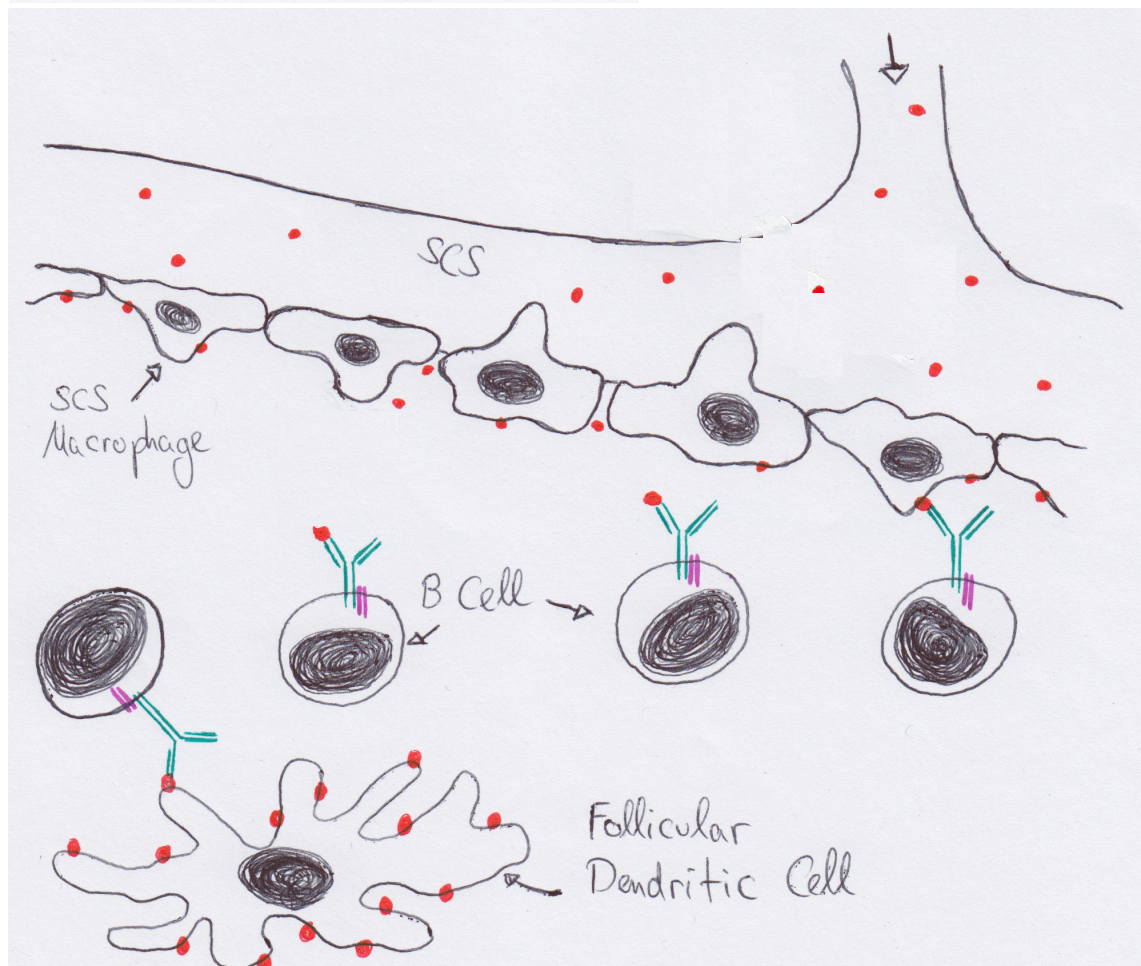 SCS
SCS
Macrophage
B Cell
Follicular
Dendritic Cell